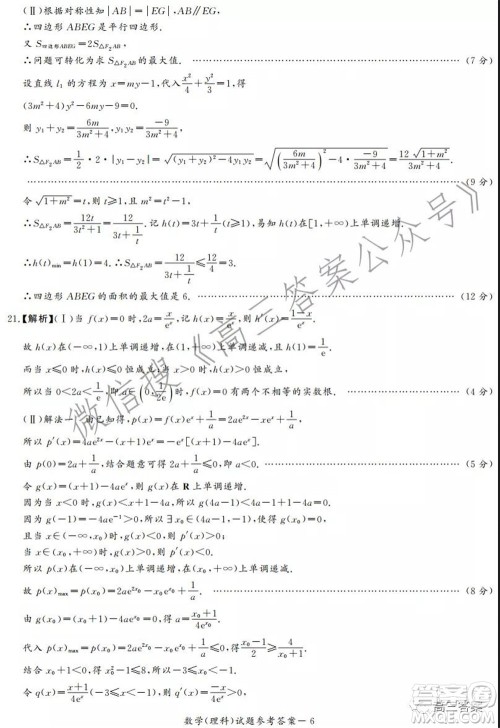 (Ⅱ)根据对称性知|AB|=|EG|,AB∥EG,
∴四边形ABEG是平行四边形.
又S四边形ABEG=2S△F₂AB,
∴问题可转化为求S△F₂AB的最大值. (7分)
设直线l₁的方程为x=my−1,代入x²/4+y²/3=1得
(3m²+4)y²−6my−9=0.
则y₁+y₂=6m/(3m²+4),y₁y₂=−9/(3m²+4).
∴S△F₂AB=1/2·2·|y₁−y₂|=√((y₁+y₂)²−4y₁y₂)=√((6m/(3m²+4))²−4·−9/(3m²+4))=12√(1+m²)/(3m²+4).
(9分)
令√(1+m²)=t,则t≥1,且m²=t²−1.
∴S△F₂AB=12t/(3t²+1)=12/(3t+1/t).记h(t)=3t+1/t(t≥1),易知h(t)在[1,+∞)上单调递增.
∴h(t)min=h(1)=4.∴S△F₂AB=12/(3t+1/t)≤12/4=3.
∴四边形ABEG的面积的最大值是6. (12分)
21.【解析】(Ⅰ)当f(x)=0时,2a=x/eˣ,记h(x)=x/eˣ,则h′(x)=(1−x)/eˣ.
故h(x)在(−∞,1)上单调递增,在(1,+∞)上单调递减.
而当x<0时,h(x)<0恒成立,当x>0时,h(x)>0恒成立,
所以当0<2a<1/e,即a∈(0,1/2e)时,f(x)=0有两个不相等的实数根. (4分)
(Ⅱ)解法一:由已知得,p(x)=2ae²ˣ−xeˣ+1/a,
所以p′(x)=4ae²ˣ−(x+1)eˣ=−eˣ(x+1−4aeˣ).
由p(0)=2a+1/a,结合题意可得2a+1/a≤0,即a<0. (5分)
令g(x)=x+1−4aeˣ,则g(x)在R上单调递增.
因为当x<0时,g(x)<x+1−4a,所以g(4a−1)<0.
因为g(−1)=−4ae⁻¹>0,所以∃x₀∈(4a−1,−1),使得g(x₀)=0.
且当x<x₀时,g(x)<0,则p′(x)>0;当x>x₀时,g(x)>0,则p′(x)<0.
所以p(x)在(−∞,x₀)上单调递增,在(x₀,+∞)上单调递减.
故p(x)max=p(x₀)=2ae²ˣ⁰−x₀eˣ⁰+1/a. (8分)
由g(x₀)=x₀+1−4aeˣ⁰=0,得a=(x₀+1)/4eˣ⁰.
代入p(x)max=p(x₀)=2ae²ˣ⁰−x₀eˣ⁰+1/a≤0,得(x₀−1)/2≥4/(x₀+1).
结合x₀<−1,得x₀²−1≤8,所以−3≤x₀<−1.
令q(x)=(x+1)/4eˣ,则q′(x)=−x/4eˣ>0,
数学(理科)试题参考答案−6
微信搜《高三答案公众号》
高三答案